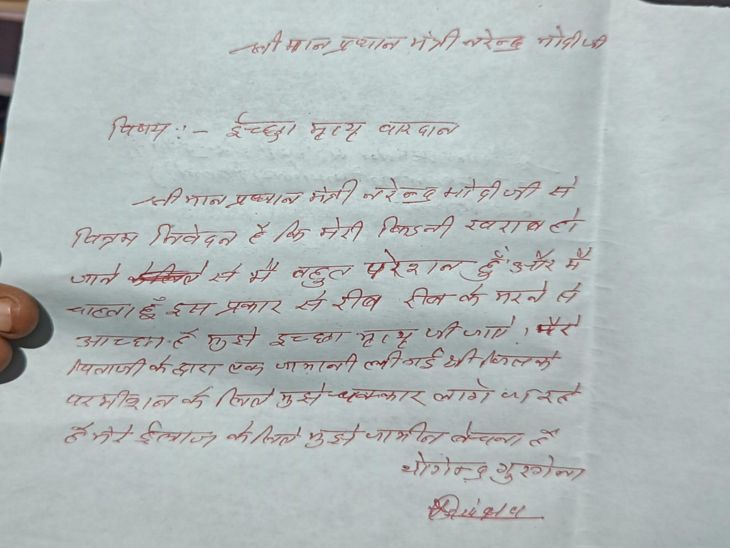 श्रीमान प्रधान मंत्री नरेन्द्र मोदी जी
विषय :- ईच्छा मृत्यु वारदान
श्रीमान प्रधान मंत्री नरेन्द्र मोदी जी से
विनम्र निवेदन है कि मेरी किडनी खराब हो
जाने से मै बहुत परेशान हूँ और मै
चाहता हूँ इस प्रकार से रीब रीब के मरने से
आच्छा है मुझे इच्छा मृत्यु दी जाए।
पिताजी के द्वारा एक जामानी ली गई थी जिसके
परमीशन के लिए मुझे चक्कार लागे पा रहे
है मेरे ईलाज के लिए मुझे जामीन बेचना है
योगेन्द्र